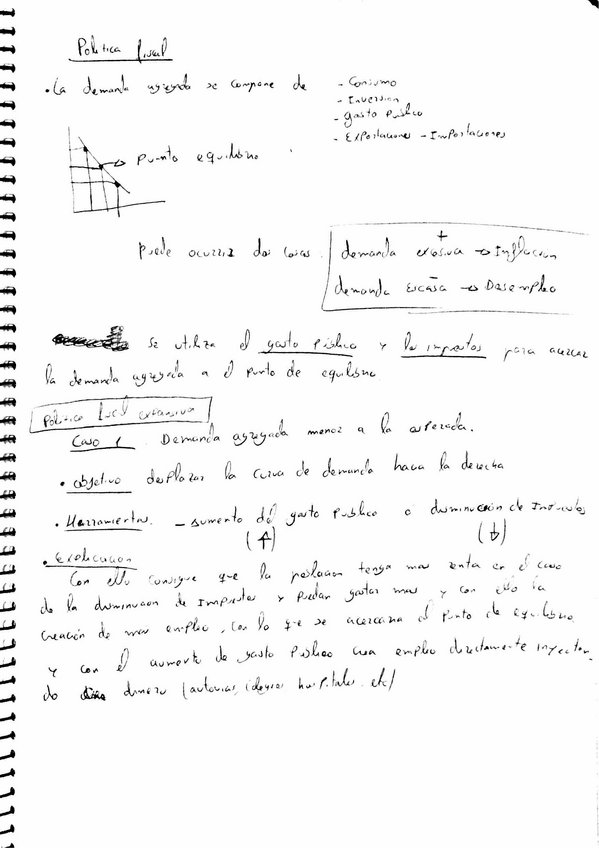 Politica fiscal
• La demanda agregada se compone de
- Consumo
- Inversion
- gasto Publico
- Exportaciones - Importaciones
→ punto equilibrio
puede ocurrir dos cosas.
+
demanda exesiva → Inflacion
demanda escasa → Desempleo
Se utiliza el gasto Público y los impuestos para acercar
la demanda agregada a el punto de equilibrio
Politica fiscal expansiva
Caso 1 Demanda agregada menor a la esperada.
• objetivo desplazar la curva de demanda hacia la derecha
• Herramientas. - aumento del gasto Publico o disminución de Impuestos
(↑) (↓)
• Explicacion
Con ello consigue que la poblacion tenga mas renta en el caso
de la disminucion de Impuestos y puedan gastar mas y con ello la
creacion de mas empleo, con lo que se acercaria al Punto de equilibrio
y con el aumento de gasto Publico crea empleo directamente inyectan-
do dinero (autovias, colegios hospitales. etc)